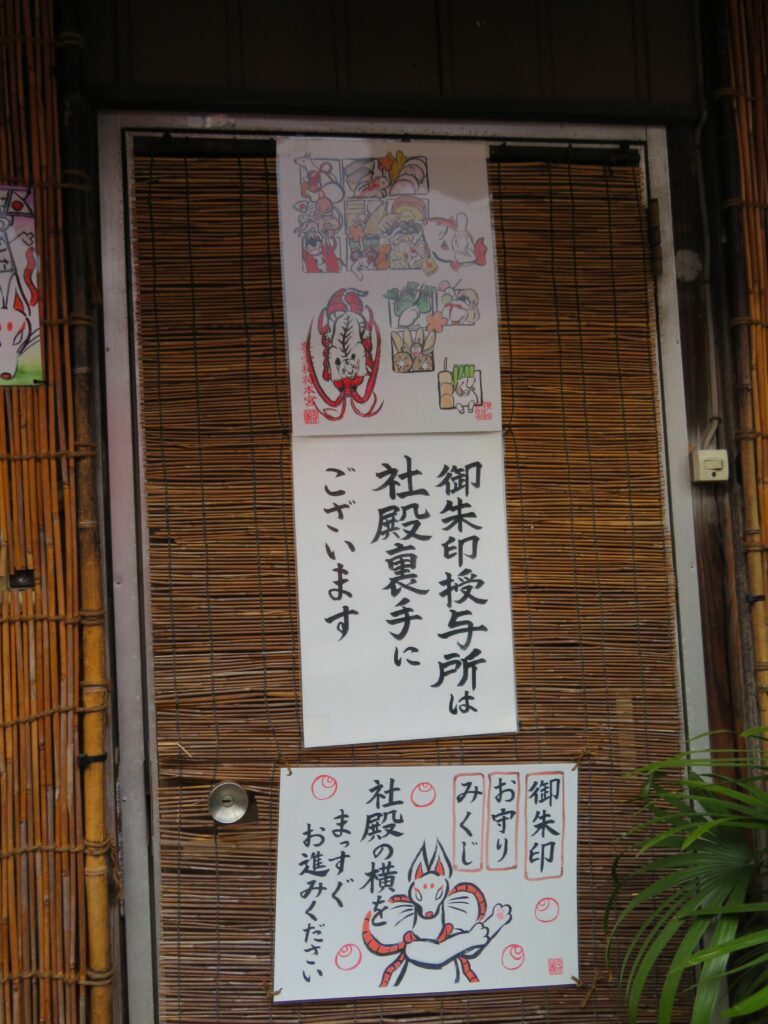 御朱印授与所は
社殿裏手に
ございます
御朱印
お守り
みくじ
社殿の横を
まっすぐ
お進みください